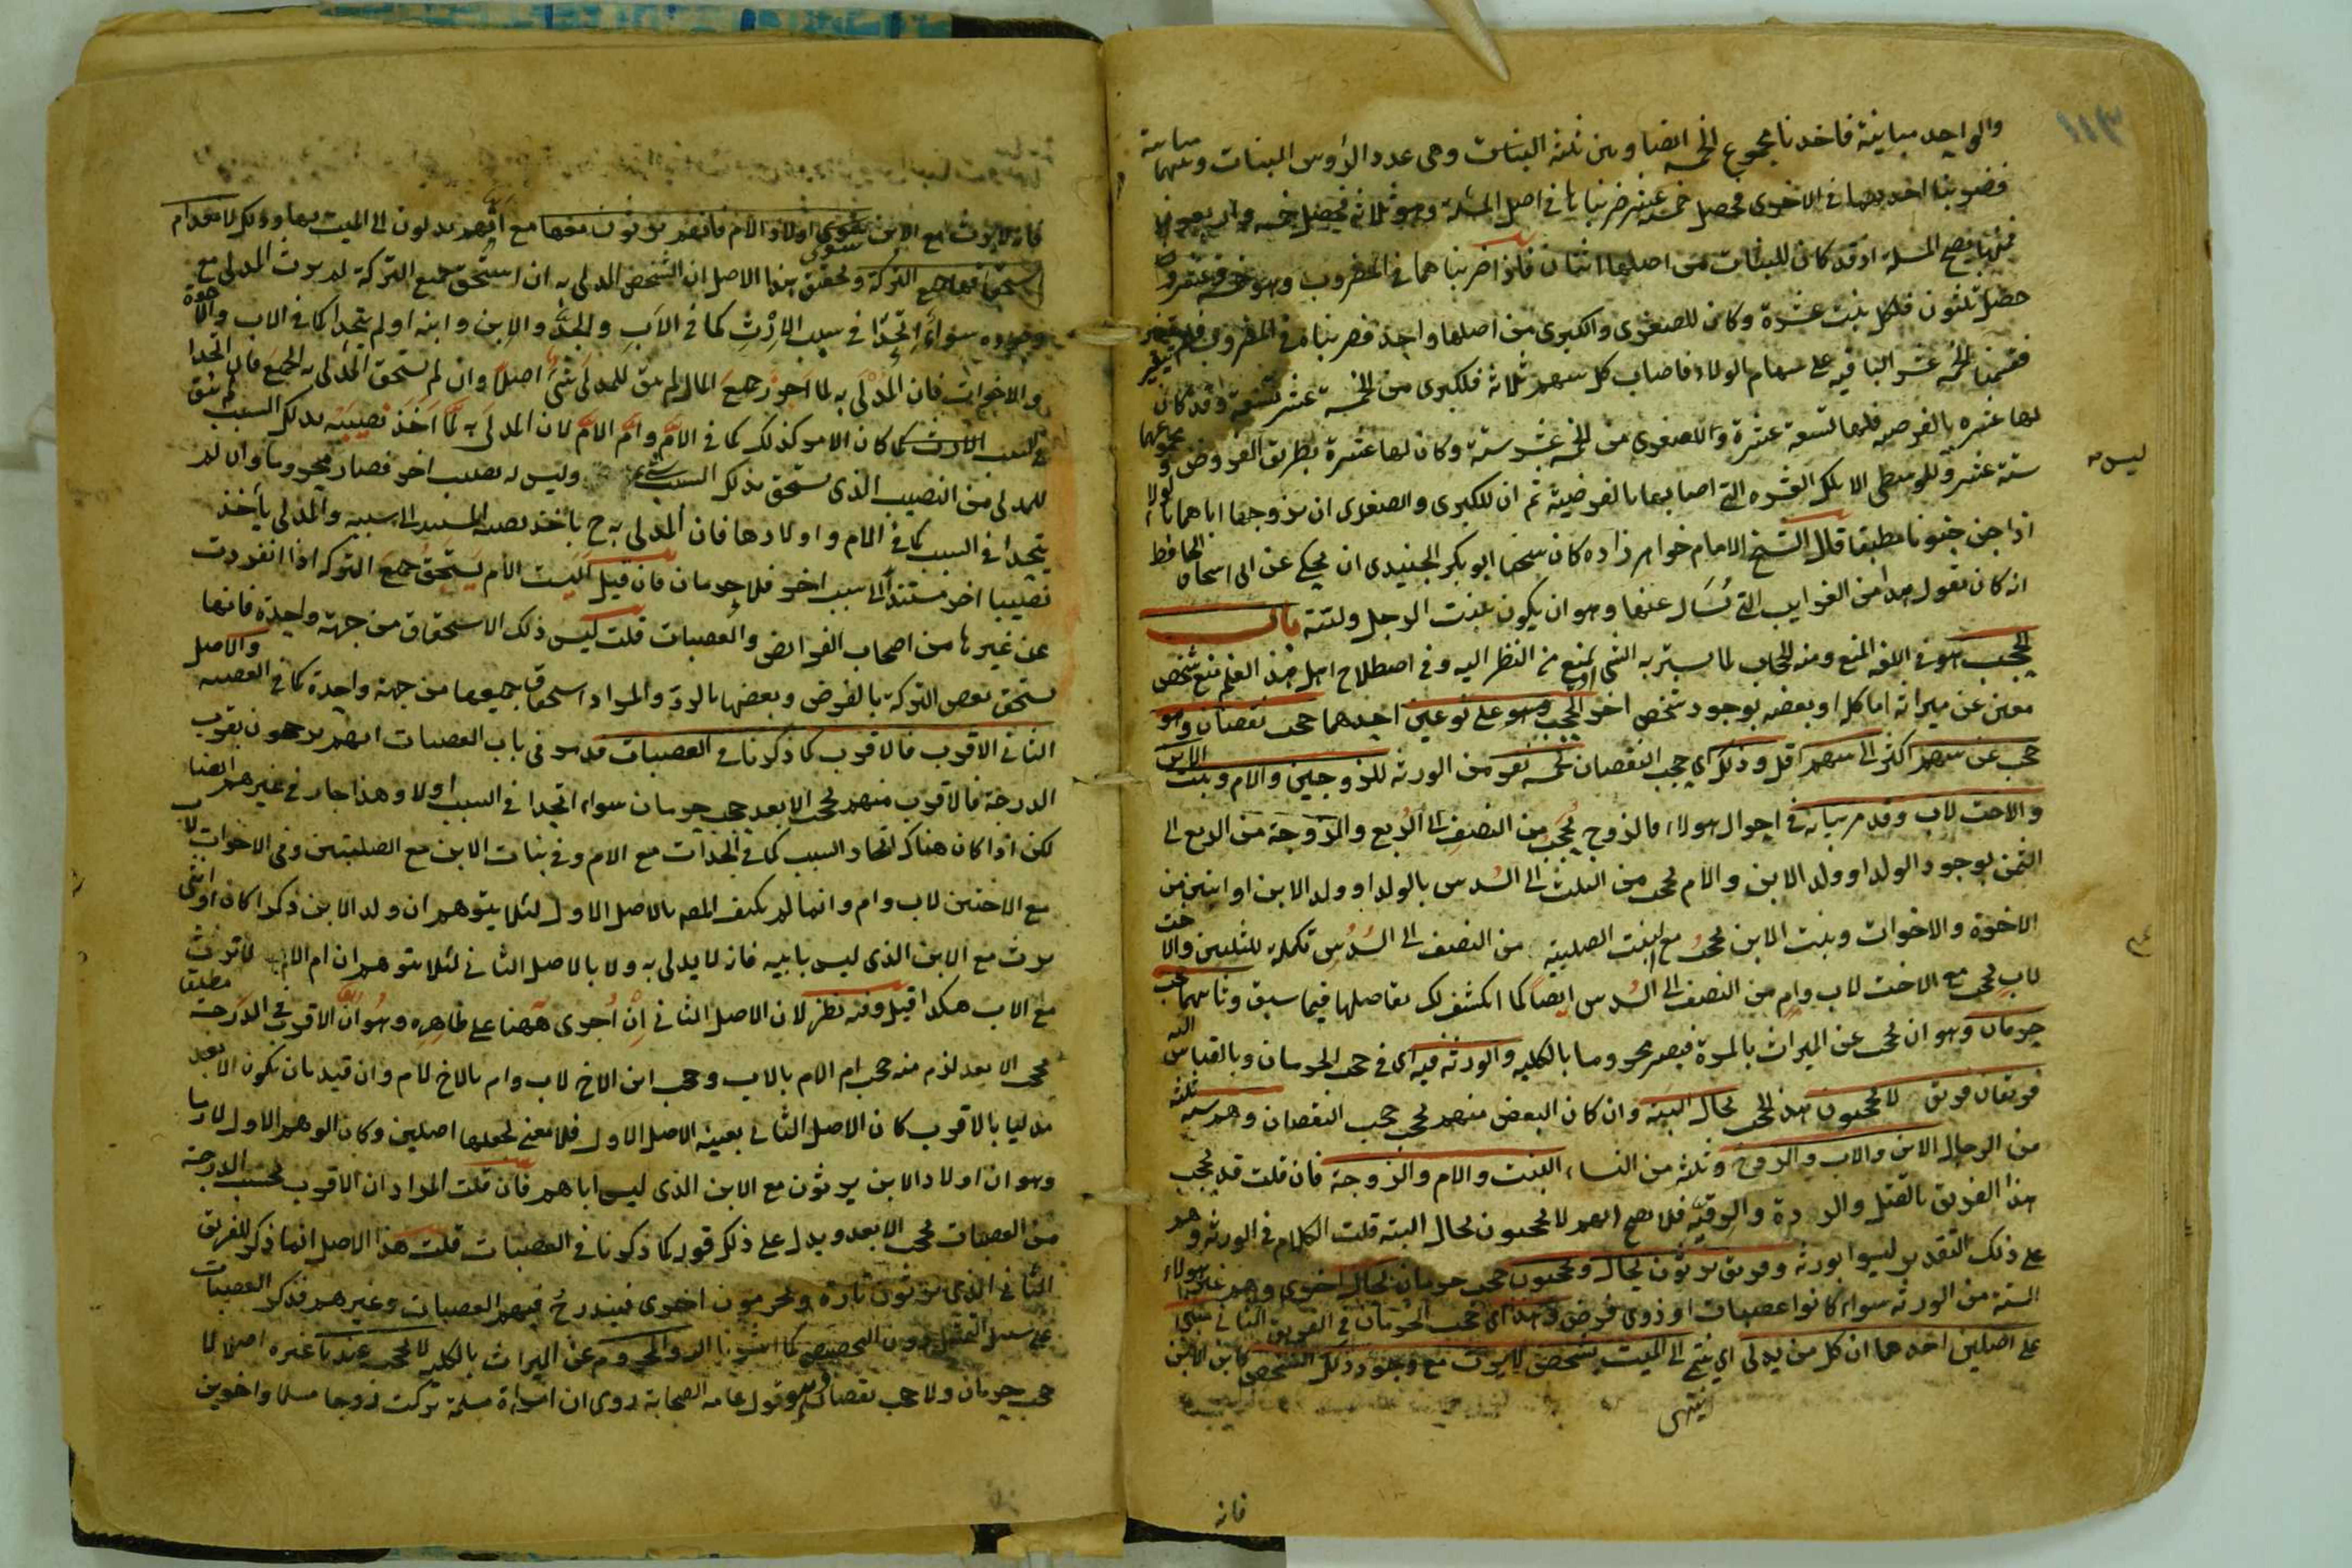 والواحد مباينة فاخذنا مجموع الخمسة ايضا وبين ثلثة البنات وهى عدد الرؤس البنات وسهما مباينة
فضربنا احديهما فى الاخرى فحصل خمسة عشر ضربناها فى اصل المسئلة وهو ثلاثة فحصل خمسة واربعون
فمنها تصح المسئلة اذ قد كان للبنات من اصلها اثنان فاذا ضربناهما فى المضروب وهو خمسة عشر
حصل ثلثون فلكل بنت عشرة وكان للصغرى والكبرى من اصلها واحد فضربناه فى المضروب
فقسمنا الخمسة عشر الباقية على سهام الولاء فاصاب كل سهم ثلاثة فللكبرى من الخمسة عشر تسعة وقد كان
لها عشرة بالفرضية فلها تسعة عشرة وللصغرى من الخمسة عشر ستة وكان لها عشرة بطريق الفروض ومجموعهما
ستة عشر وللوسطى الا تلك العشرة التى اصابتها بالفرضية ثم ان للكبرى والصغرى ان يزوجها اباهما بالولاء
اذا جن جنونا مطبقا قال الشيخ الامام خواهر زاده كان شيخنا ابو بكر الجنيدى ان يحكى عن ابى اسحاق الحافظ
انه كان يقول هذا من الغرايب التى تسال عنها وهو ان يكون لبنت الرجل ولبنته باب
الحجب هو فى اللغة المنع ومنه الحجاب لما يستر به الشئ او يمنع من النظر اليه وفى اصطلاح اهل هذا العلم منع شخص
معين عن ميراثه اما كله او بعضه بوجود شخص اخر الحجب وهو على نوعين احدهما حجب نقصان وهو
حجب عن سهم اكثر الى سهم اقل وذلك اى حجب النقصان لخمسة نفر من الورثة للزوجين والام وبنت الابن
والاخت لاب وقد مر بيانه فى احوال هولاء فالزوج يحجب من النصف الى الربع والزوجة من الربع الى
الثمن بوجود الولد او ولد الابن والام يحجب من الثلث الى السدس بالولد او ولد الابن او اثنين من
الاخوة والاخوات وبنت الابن تحجب مع البنت الصلبية من النصف الى السدس تكملة للثلثين والاخت
لاب تحجب مع الاخت لاب وام من النصف الى السدس ايضا كما انكشف لك تفاصيلها فيما سبق وثانيهما حجب
حرمان وهو ان يحجب عن الميراث بالمرة فيصير محروما بالكلية والورثة فيه اى فى حجب الحرمان وبالقياس اليه
فريقان فريق لا يحجبون هذا الحجب بحال البتة وان كان البعض منهم يحجب حجب النقصان وهم ستة ثلثة
من الرجال الابن والاب والزوج وثلثة من النساء البنت والام والزوجة فان قلت قد يحجب
هذا الفريق بالقتل والردة والرقية فلا يصح انهم لا يحجبون بحال البتة قلت الكلام فى الورثة وهم
على ذلك التقدير ليسوا بورثة وفريق يرثون بحال ويحجبون حجب حرمان بحال اخرى وهم غير هولاء
الستة من الورثة سواء كانوا عصبات او ذوى فروض وهذا اى حجب الحرمان فى الفريق الثانى مبنى
على اصلين احدهما ان كل من يدلى اى ينتمى الى الميت بشخص لا يرث مع وجود ذلك الشخص كابن الابن
انتهى
فانه
ليس
فانه لا يرث مع الابن سوى اولاد الام فانهم يرثون معها مع انهم يدلون الى الميت بها وذلك لانعدام
استحقاقها جميع التركة وتحقيق هذا الاصل ان الشخص المدلى به ان استحق جميع التركة لم يرث المدلى مع
وجوده سواء اتحدا فى سبب الارث كما فى الاب والجد والابن وابنه او لم يتحدا كما فى الاب والاخوة
والاخوات فان المدلى به لما احرز جميع المال لم يبق للمدلى شئ اصلا وان لم يستحق المدلى به الجميع فان اتحدا
فى سبب الارث كما كان الامر كذلك كما فى الام وام الام لان المدلى به لما اخذ نصيبه بذلك السبب لم يبق
للمدلى من النصيب الذى يستحق بذلك السبب شئ وليس له نصيب اخر فصار محروما وان لم
يتحدا فى السبب كما فى الام واولادها فان المدلى به ح ياخذ نصيبه المستند الى سببه والمدلى ياخذ
نصيبا اخر مستندا الى سبب اخر فلا حرمان فان قيل اليست الام يستحق جميع التركة اذا انفردت
عن غيرها من اصحاب الفرائض والعصبات قلت ليس ذلك الاستحقاق من جهة واحدة فانها
تستحق بعض التركة بالفرض وبعضها بالرد والمراد استحقاق جميعها من جهة واحدة كما فى العصبة والاصل
الثانى الاقرب فالاقرب كما ذكرنا فى العصبات قد مر فى باب العصبات انهم يرجحون بقرب
الدرجة فالاقرب منهم يحجب الابعد حجب حرمان سواء اتحدا فى السبب او لا وهذا جار فى غيرهم ايضا
لكن اذا كان هناك اتحاد السبب كما فى الجدات مع الام وفى بنات الابن مع الصلبيتين وفى الاخوات لاب
مع الاختين لاب وام وانما لم يكتف المص بالاصل الاول لئلا يتوهم ان ولد الابن ذكرا كان او انثى
يرث مع الابن الذى ليس بابيه فانه لا يدلى به ولا بالاصل الثانى لئلا يتوهم ان ام الام لا ترث
مع الاب هكذا قيل وفيه نظر لان الاصل الثانى ان اجرى ههنا على ظاهره وهو ان الاقرب فى الدرجة مطلقا
يحجب الابعد لزم منه حجب ام الام بالاب وحجب ابن الاخ لاب وام بالاخ لام وان قيد بان يكون الابعد
مدليا بالاقرب كان الاصل الثانى بعينه الاصل الاول فلا معنى لجعلها اصلين وكان الوهم الاول لازما
وهو ان اولاد الابن يرثون مع الابن الذى ليس اباهم فان قلت المراد ان الاقرب بحسب الدرجة
من العصبات يحجب الابعد ويدل على ذلك قوله كما ذكرنا فى العصبات قلت هذا الاصل انما ذكر للفريق
الثانى الذى يرثون تارة ويحرمون اخرى فيندرج فيهم العصبات وغيرهم فذكر العصبات
على سبيل التمثيل دون التخصيص كما اشرنا اليه والمحروم عن الميراث بالكلية لا يحجب عندنا غيره اصلا لا
حجب حرمان ولا حجب نقصان وهو قول عامة الصحابة روى ان امراة مسلمة تركت زوجا مسلما واخوين